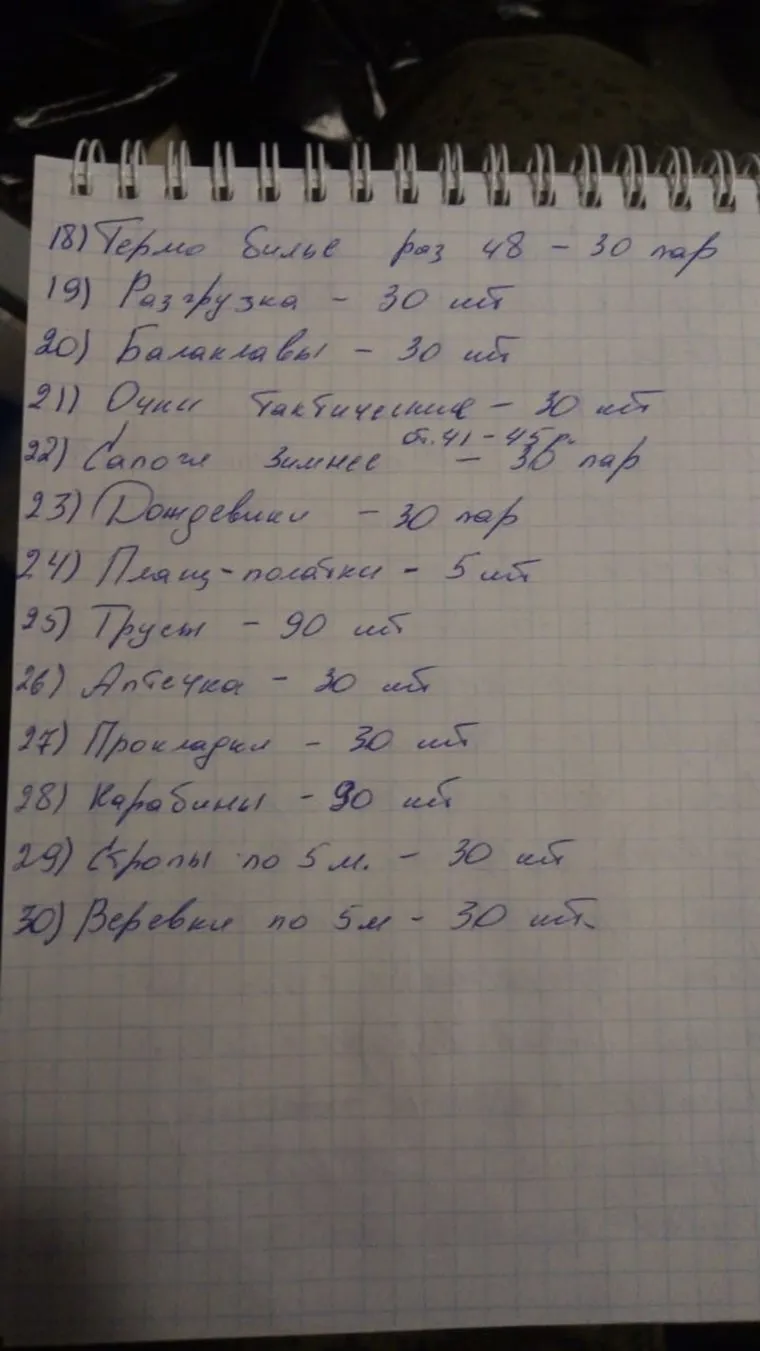 18) Термо билье раз 48 - 30 пар
19) Разгрузка - 30 шт
20) Балаклавы - 30 шт
21) Очки тактические - 30 шт
от. 41 - 45 р.
22) Сапоги зимнее - 30 пар
23) Дождевики - 30 пар
24) Плащ-полатки - 5 шт
25) Трусы - 90 шт
26) Аптечка - 30 шт
27) Прокладки - 30 шт
28) Карабины - 90 шт
29) Стропы по 5 м. - 30 шт
30) Веревки по 5м - 30 шт.